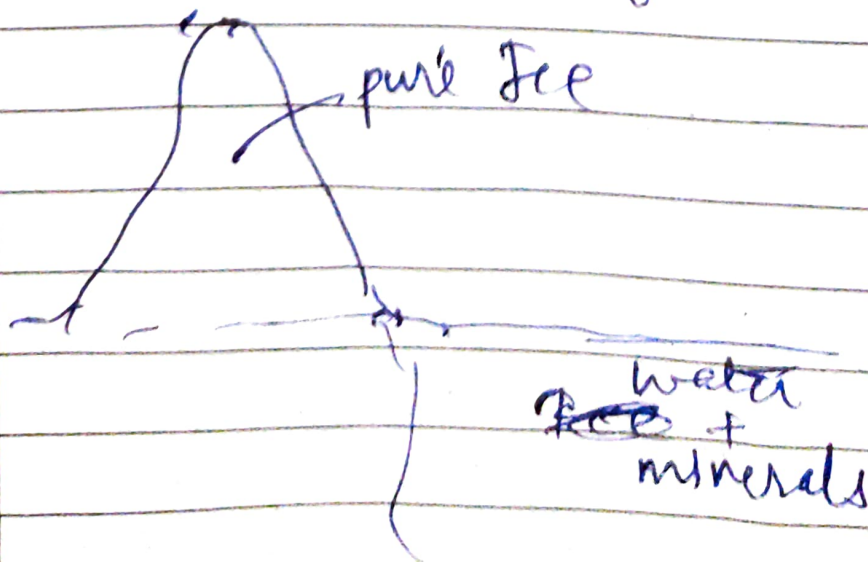 pure Ice
water
Ice +
minerals